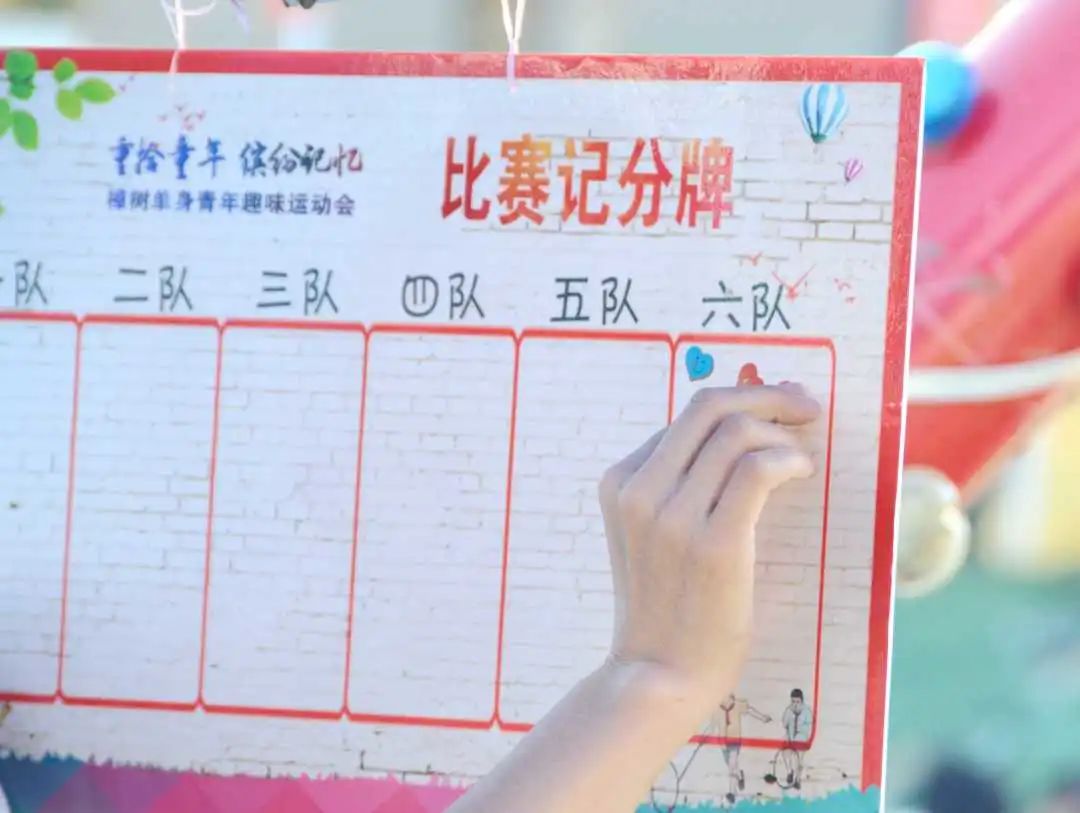 重拾童年 缤纷记忆
樟树单身青年趣味运动会
比赛记分牌
一队 二队 三队 四队 五队 六队